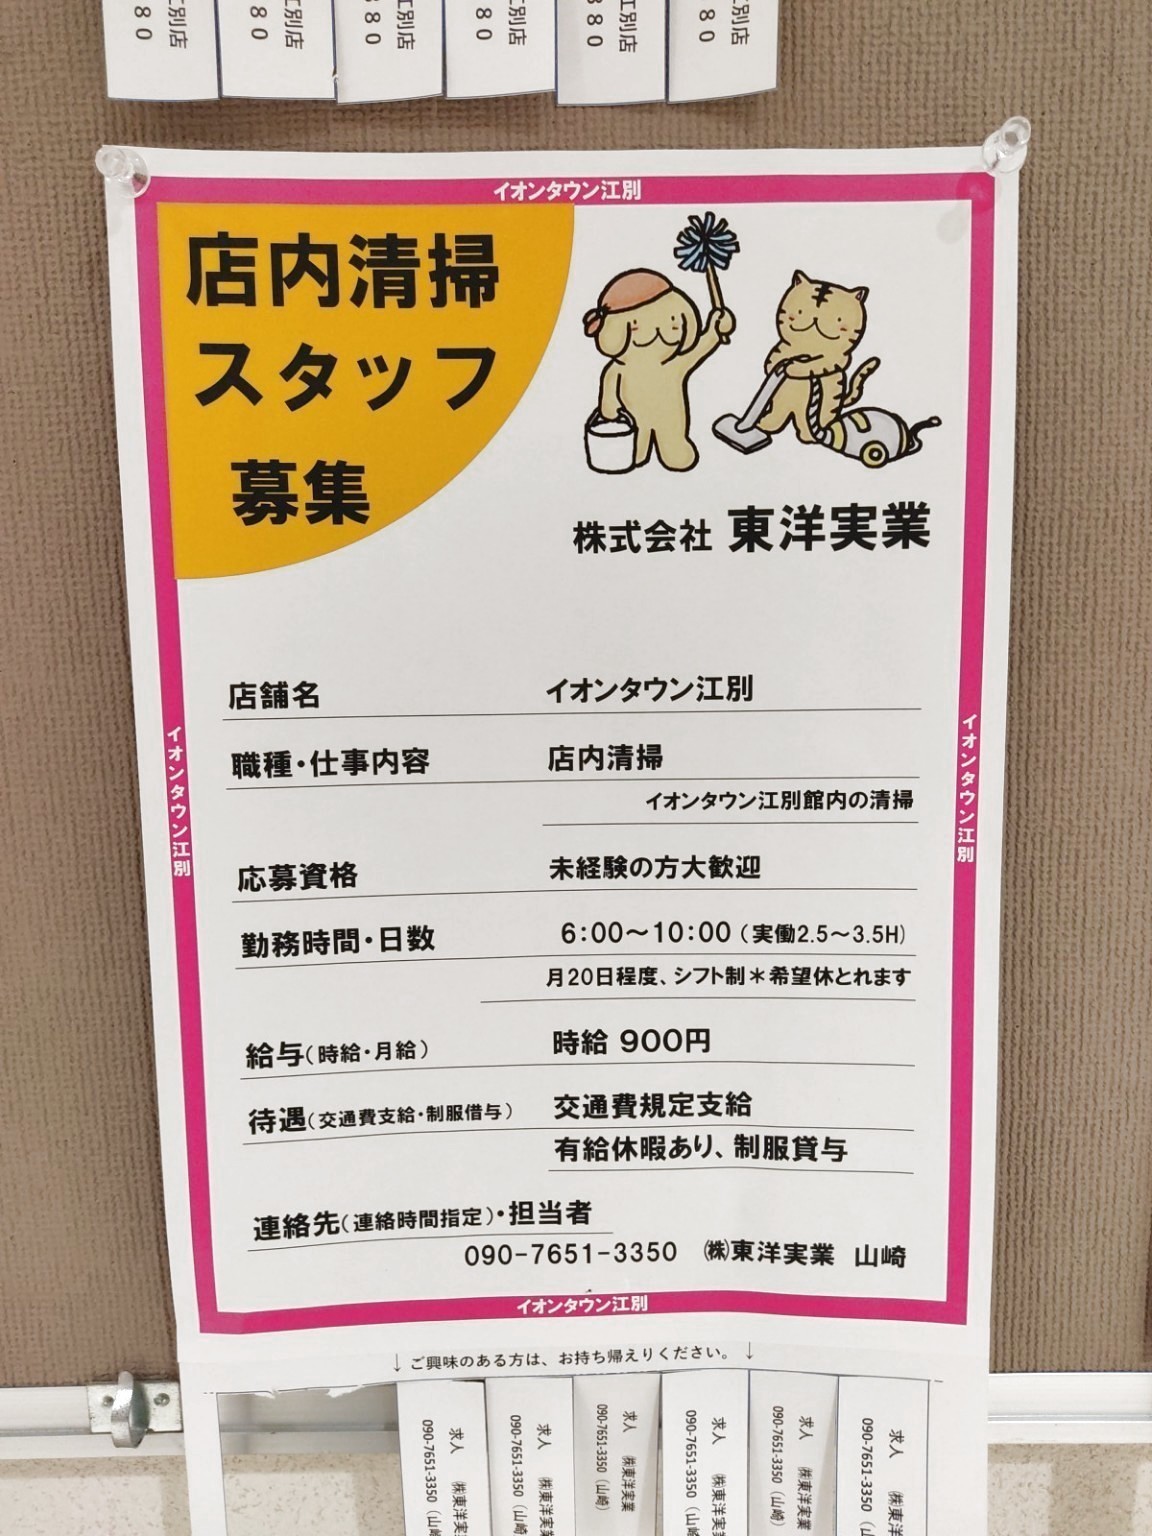 江別店
80
江別店
80
江別店
880
江別店
80
江別店
880
江別店
80
イオンタウン江別
店内清掃
スタッフ
募集
株式会社 東洋実業
イオンタウン江別
イオンタウン江別
店舗名 イオンタウン江別
職種・仕事内容 店内清掃
イオンタウン江別館内の清掃
応募資格 未経験の方大歓迎
勤務時間・日数 6:00～10:00（実働2.5～3.5H）
月20日程度、シフト制＊希望休とれます
給与（時給・月給） 時給 900円
待遇（交通費支給・制服借与） 交通費規定支給
有給休暇あり、制服貸与
連絡先（連絡時間指定）・担当者
090-7651-3350 ㈱東洋実業 山崎
イオンタウン江別
↓ご興味のある方は、お持ち帰えりください。↓
求人 ㈱東洋実
090-7651-3350（山崎
求人 ㈱東洋実業
090-7651-3350（山崎）
求人 ㈱東洋実業
090-7651-3350（山崎）
求人 ㈱東洋実業
090-7651-3350（山崎）
求人 ㈱東洋実業
090-7651-3350（山崎）
求人 ㈱東洋実
090-7651-3350（山